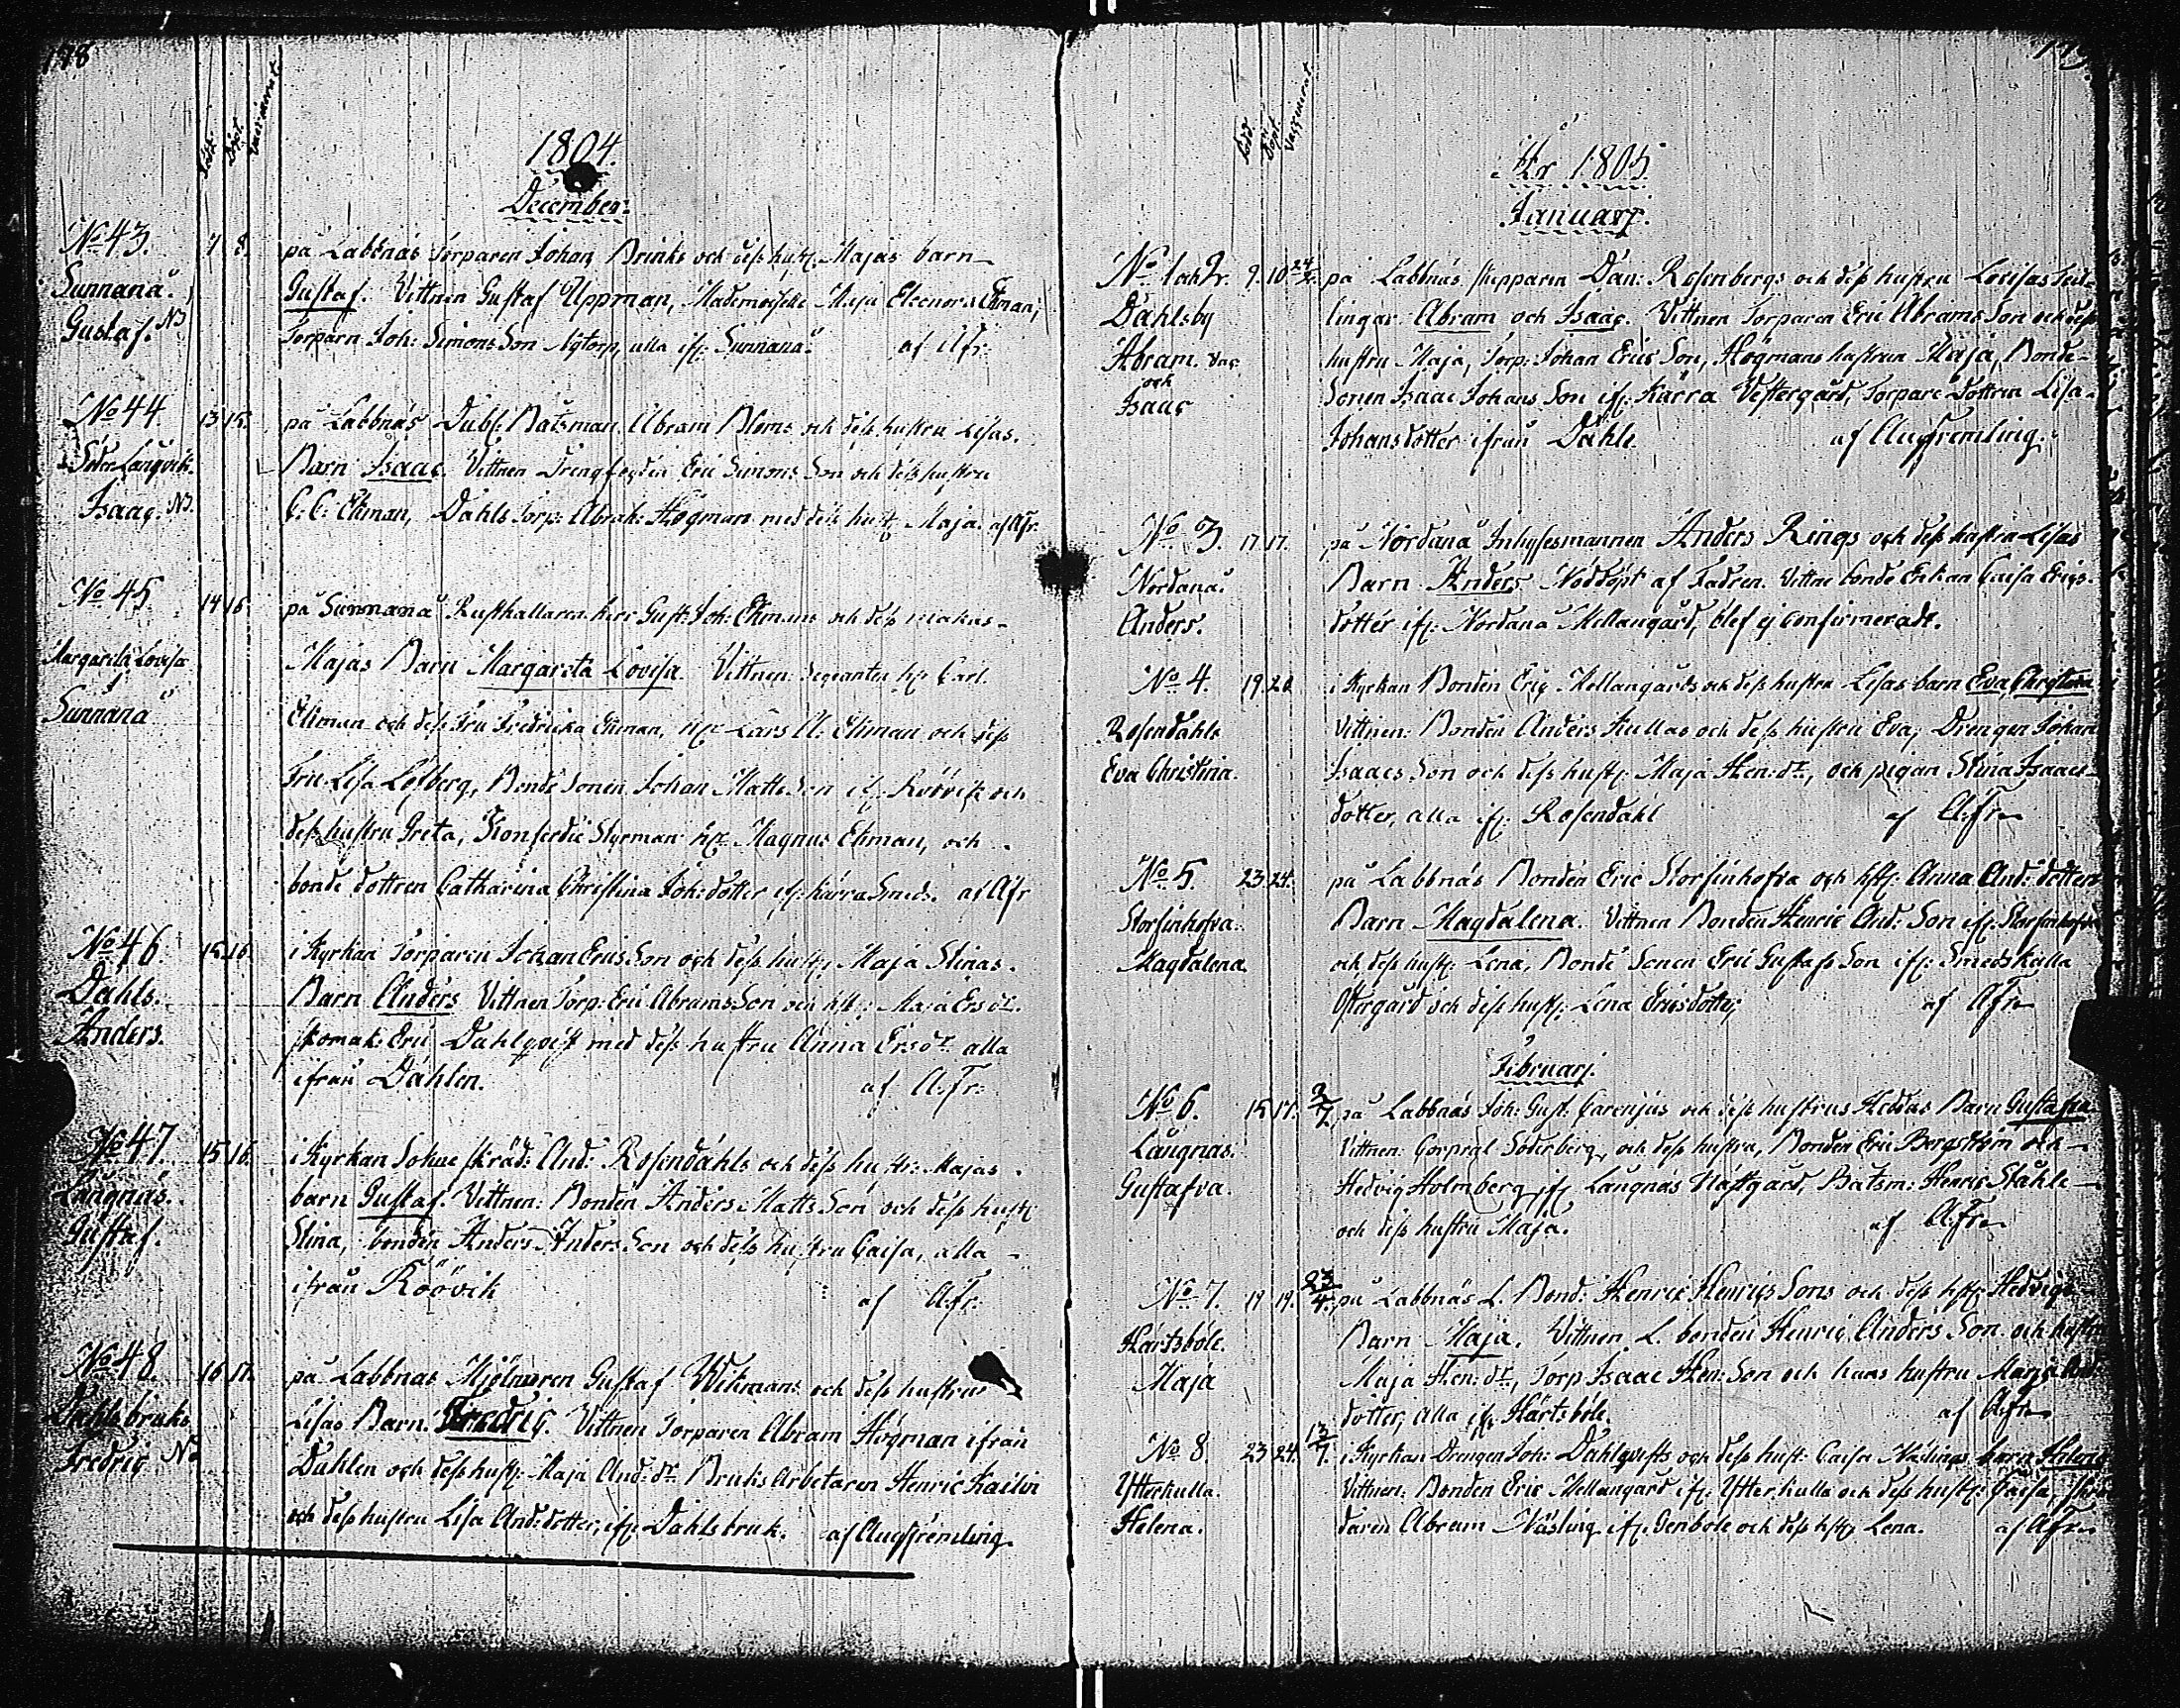 198
född. Döpt. Vaccinerat
1804.
December.
No 43. 7 8. på Labbnäs Torparen Johan Brinks och dess hust: Majas barn
Sunnanå. Gustaf. Vittnen Gustaf Uppman, Mademoiselle Maja Eleonora Ekman,
Gustaf. NB Torparn Joh: Simons Son Nytorp, alla if: Sunnanå. af Afr:
No 44. 13 15. på Labbnäs Dubl: Båtsman Abram Bloms och dess hustru Lisas
Söder Långvik. Barn Isaac. Vittnen Drengfogden Eric Simons Son och dess hustru
Isaac. NB. C: C: Ekman, Dahls Torp: Abrah: Högman med dess hust: Maja. af Afr.
No 45. 14 16. på Sunnanå Rusthållaren herr Gust: Joh: Ekmans och dess makas
Margareta Lovisa Majas Barn Margareta Lovisa. Vittnen: Sergeanten hr: Carl
Sunnanå Ekman och dess Fru Fredricka Ekman, Hr: Lars A: Ekman och dess
Fru Lisa Löfberg, Bonde Sonen Johan Matts Son if: Röövik och
dess hustru Greta, Konferdie Styrman Hr: Magnus Ekman, och
bonde dottren Catharina Christina Joh: dotter if: Kärra Smeds. af Afr
No 46. 15. 16. i Kyrkan Torparen Johan Erics Son och dess hust: Maja Stinas
Dahls. Barn Anders Vittnen Torp: Eric Abrams Son och hst: Maja Ersdr.
Anders. skomak: Eric Dahlqvist med dess hustru Anna Ersdr alla
ifrån Dahlen. af A:Fr:
No 47 15. 16. i Kyrkan Sokne skräd: And: Rosendahls och dess hustr: Majas
Långnäs. barn Gustaf. Vittnen: Bonden Anders Matts Son och dess hust:
Gustaf. Stina, bonden Anders Anders Son och dess hustru Caisa, alla
ifrån Röövik af A:fr:
No 48. 16 17. på Labbnäs Mjölnaren Gustaf Wikmans och dess hustrus
Dahlsbruks Lisas Barn. Fredric. Vittnen Torparen Abram Högman ifrån
Fredric NB Dahlen och dess hust: Maja And: dr. Bruks Arbetaren Henric Kailin
och dess hustru Lisa And: dotter, if: Dahlsbruk. af Aug Fremling.
född. Döpt. Vaccinerat
År 1805.
Januarj.
No 1 och 2. 9. 10 på Labbnäs skepparen Dan: Rosenbergs och dess hustru Lovisas Tvil-
Dahlsby lingar Abram och Isaac. Vittnen Torparen Eric Abrams Son och dess
Abram. Vac. hustru Maja, Torp: Johan Erics Son, Högmans hustrun Maja, Bonde-
och
Isaac Sonen Isaac Johans Son if: Kärra Vestergård, Torpare Dottren Lisa
Johansdotter ifrån Dahle. af Aug Fremling.
No 3. 17 17. på Nordanå Inhysesmannen Anders Rings och dess hustru Lisas
Nordanå. Barn Anders Nöddöpt af Fadren. Vittne bonde Enkan Caisa Erics-
Anders. dotter if: Nordanå Mellangård, blef ej confirmeradt.
No 4. 19. 20 i Kyrkan Bonden Eric Mellangårds och dess hustru Lisas barn Eva Christina
Rosendahls Vittnen: Bonden Anders Kullas och dess hustru Eva, Drengen Johan
Eva Christina. Isaacs Son och dess hust: Maja Hen: dr, och pigan Stina Isaacs-
dotter, alla if: Rosendahl af A:fr
No 5. 23. 24. på Labbnäs Bonden Eric Storfinhofva och hst: Anna And: dotters
Storfinhofva. Barn Magdalena. Vittnen Bonden Henric And: Son if: Storfinhofva
Magdalena och dess hust: Lena, Bonde Sonen Eric Gustafs Son if: Smedskulla
Östergård och dess hust: Lena Ericsdotter. af Afr
Februarj.
No 6. 15 17. på Labbnäs Joh: Gust: Carenjus och dess hustrus Hedvas Barn Gustafva
Långnäs. Vittnen: Corpral Söderberg, och dess hustru, Bonden Eric Bergström och
Gustafva. Hedvig Holmberg if: Långnäs Nästgård, Båtsm: Henric Ståhle
och dess hustru Maja. af A:Fr
No 7. 19 19. 23/4. på Labbnäs L. Bond: Henric Henrics Sons och dess hst: Hedvigs
Härtsböle. Barn Maja. Vittnen L. bonden Henric Anders Son och hustru
Maja Maja Hen: dr, Torp Isaac Hen: Son och hans hustru Maja And:
dotter, alla if: Härtsböle. af A:fr
No 8. 23 24. 13/7. i Kyrkan Drengen Joh: Dahlqvists och dess hust: Caisa Näslings barn Helena
Ytterkulla. Vittnen: Bonden Eric Mellangård if: Ytterkulla och dess hust: Caisa,
Helena. daren Abram Näsling if: Genböle och dess hst: Lena. af Afr